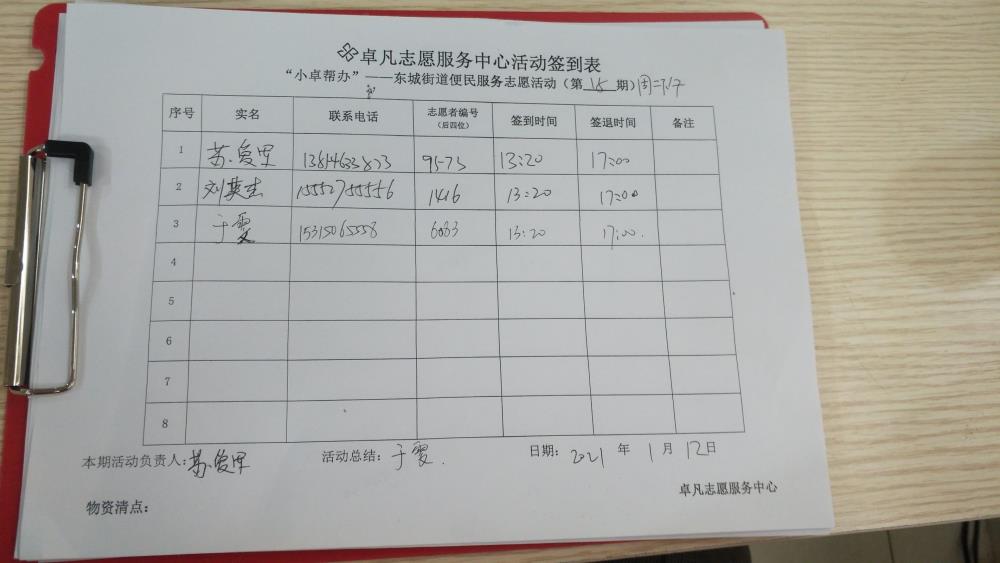 卓凡志愿服务中心活动签到表
“小卓帮办”——东城街道便民服务志愿活动(第 15 期)周二下午
序号 实名 联系电话 志愿者编号(后四位) 签到时间 签退时间 备注
1 苏 9573 13:20 17:00
2 刘英杰 15552755556 1416 13:20 17:00
3 于雯 15315065558 6083 13:20 17:00.
4
5
6
7
8
本期活动负责人:苏 活动总结:于雯. 日期:2021 年 1 月 12 日
卓凡志愿服务中心
物资清点: